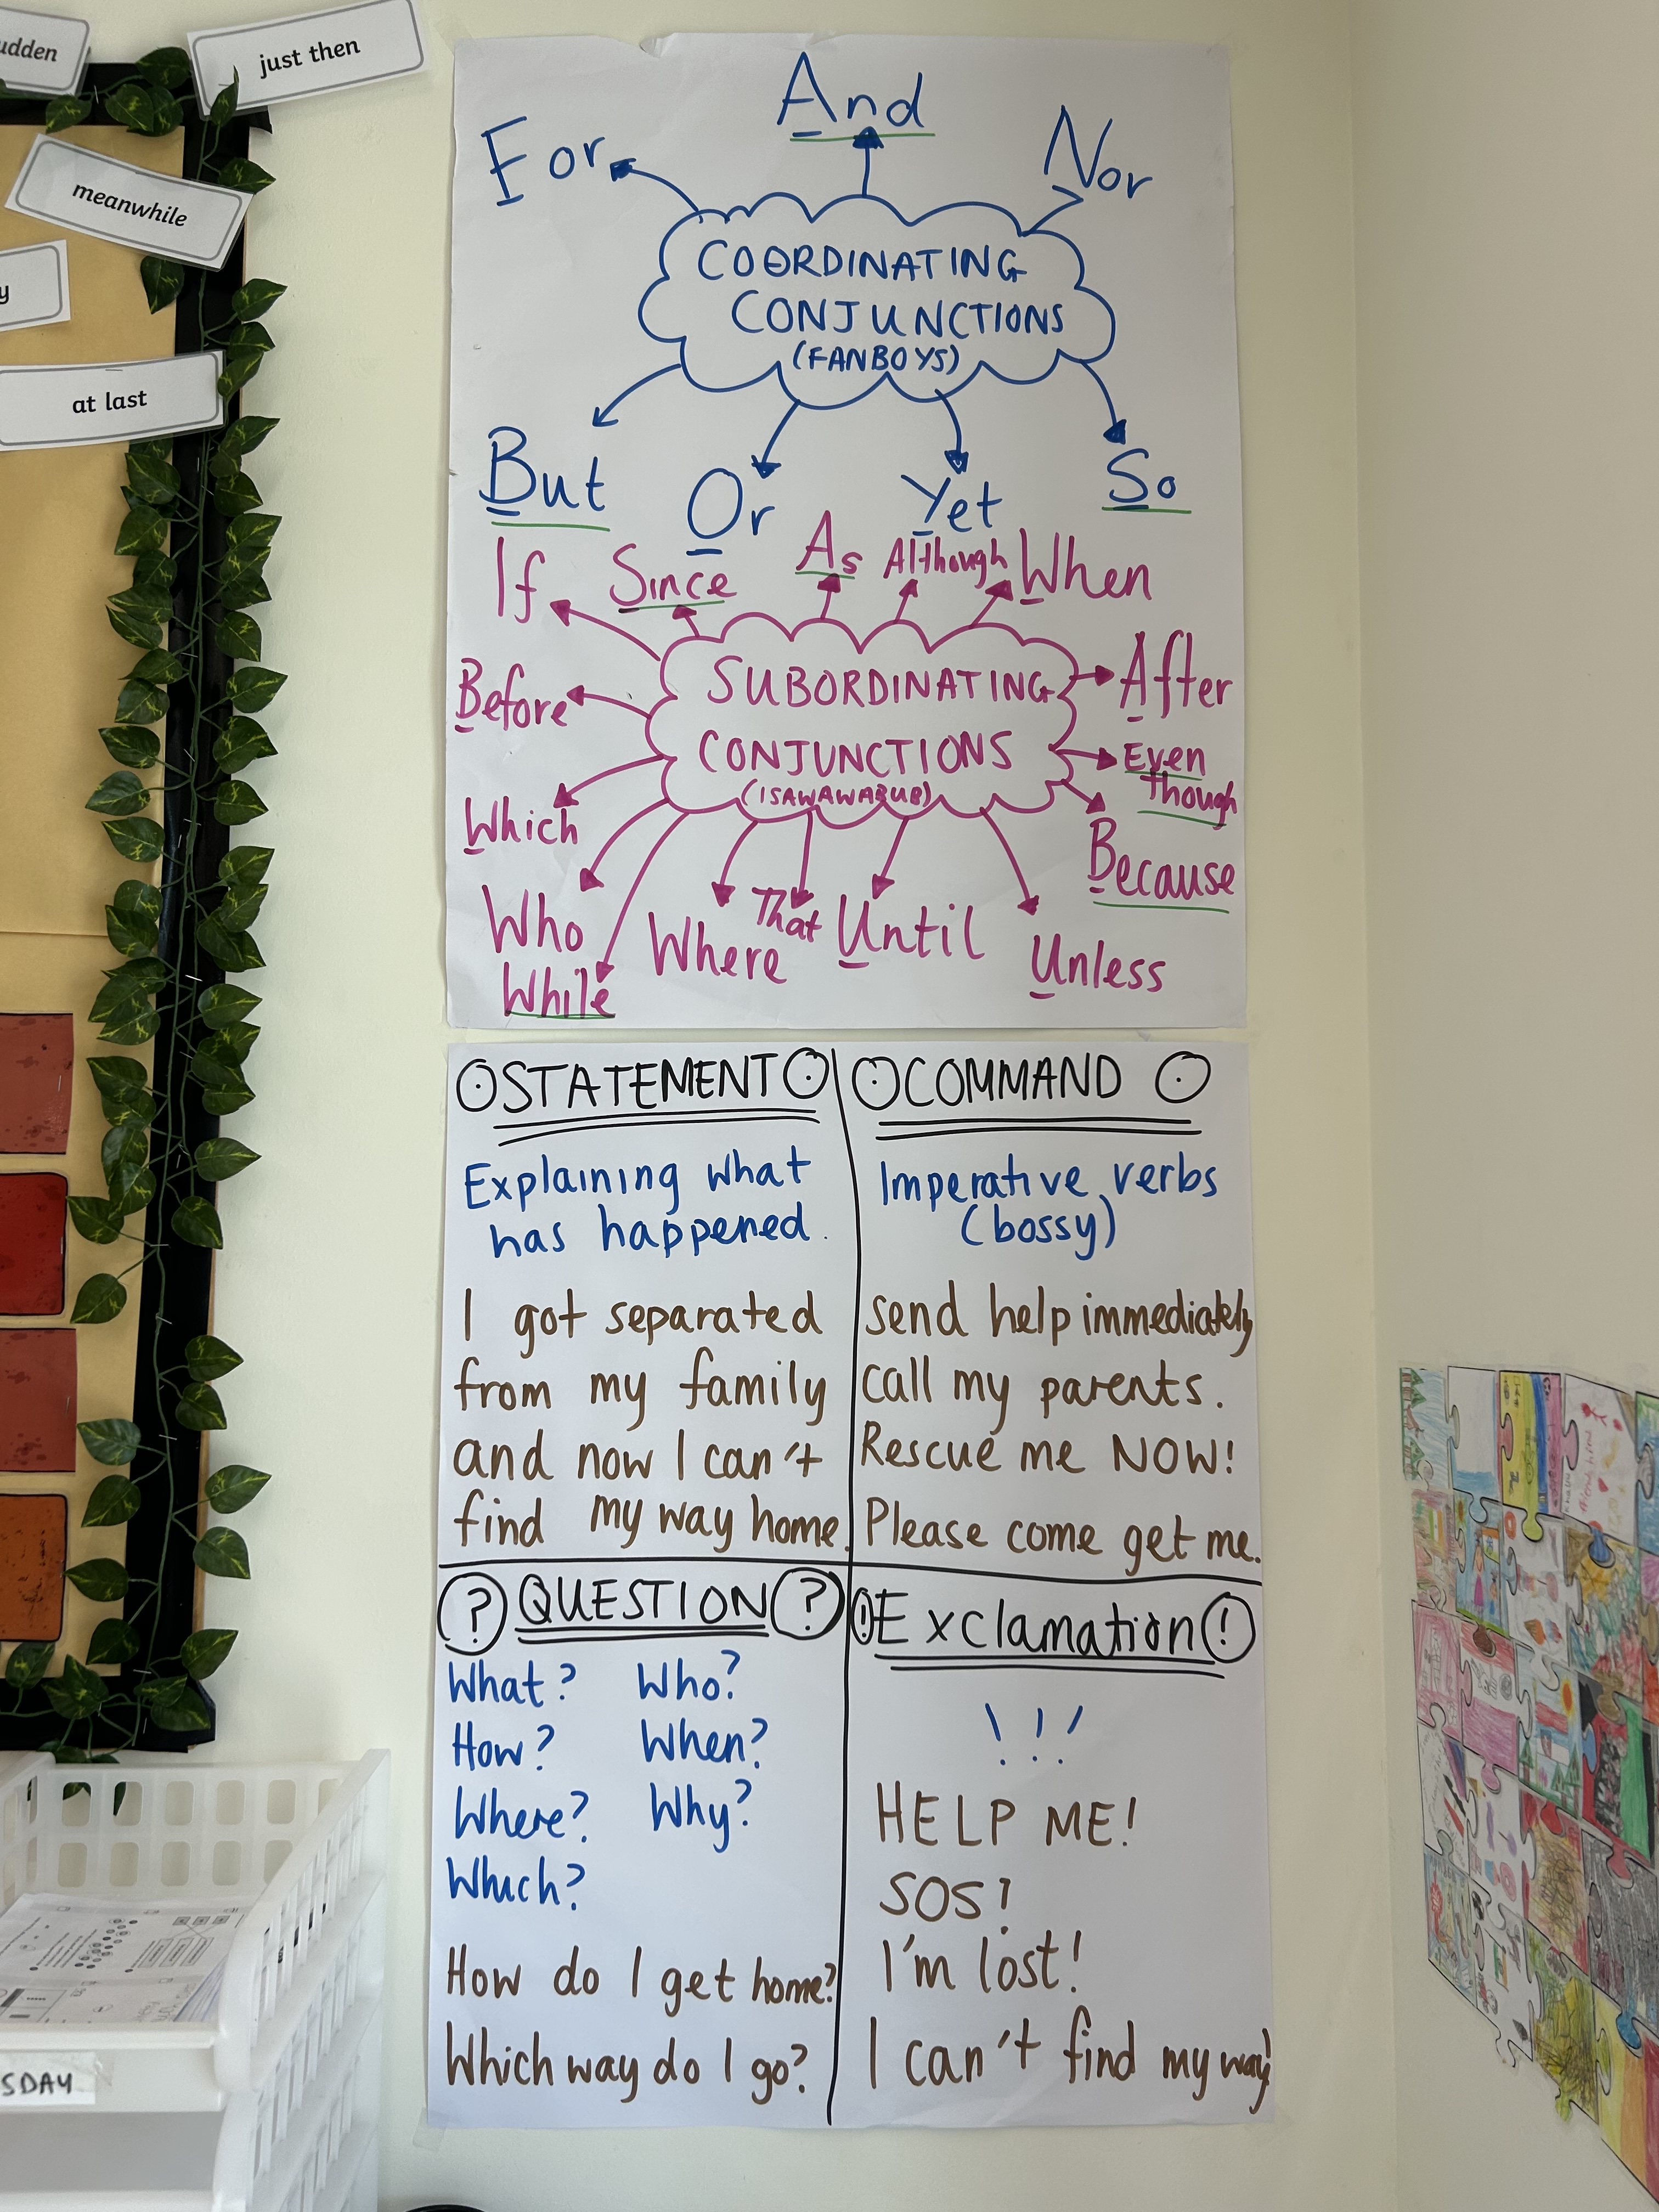 udden
just then
meanwhile
y
at last
For
And
Nor
COORDINATING
CONJUNCTIONS
(FANBOYS)
But
Or
Yet
So
If
Since
As
Although
When
Before
SUBORDINATING
CONJUNCTIONS
(ISAWAWABUB)
After
Even
though
Which
Because
Who
While
Where
That
Until
Unless
STATEMENT
Explaining what
has happened.
I got separated
from my family
and now I can't
find my way home.
COMMAND
Imperative verbs
(bossy)
Send help immediately
Call my parents.
Rescue me NOW!
Please come get me.
? QUESTION ?
What? Who?
How? When?
Where? Why?
Which?
How do I get home?
Which way do I go?
! Exclamation !
! ! !
HELP ME!
SOS!
I'm lost!
I can't find my way!
SDAY